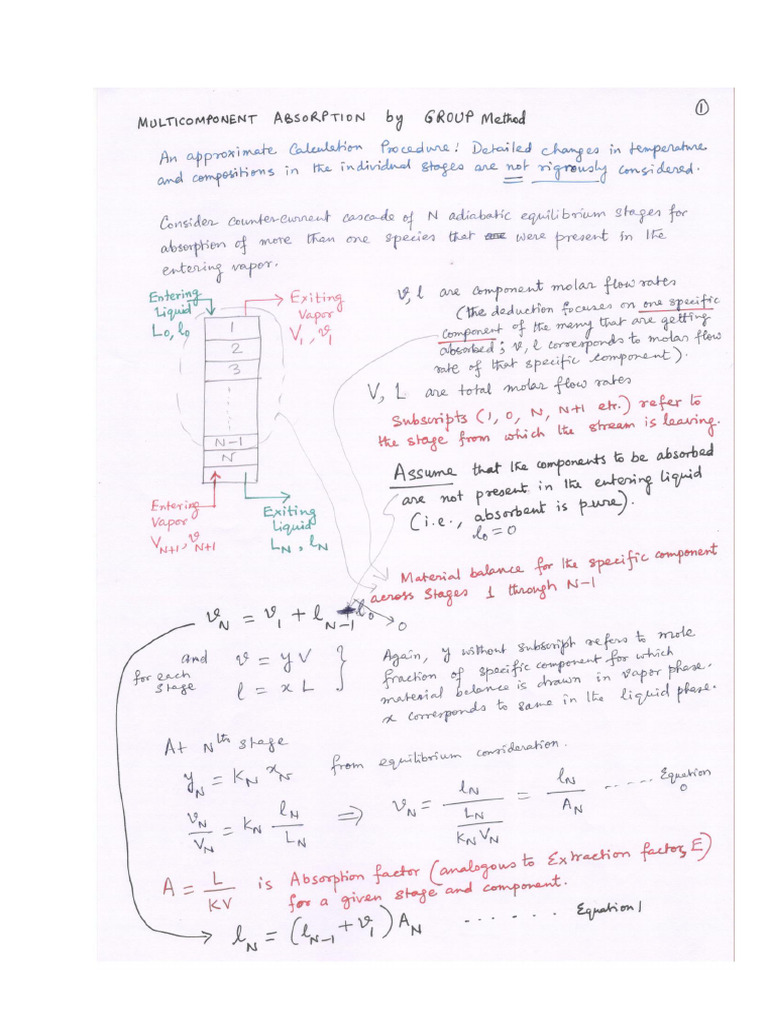 ①
MULTICOMPONENT ABSORPTION by GROUP Method
An approximate Calculation Procedure: Detailed changes in temperature
and compositions in the individual stages are not rigrously considered.
Consider countercurrent cascade of N adiabatic equilibrium stages for
absorption of more than one species that were present in the
entering vapor.
Entering
Liquid
L₀, l₀
Exiting
Vapor
V₁, v₁
1
2
3
N-1
N
Entering
Vapor
V_{N+1}, v_{N+1}
Exiting
Liquid
L_N, l_N
v, l are component molar flow rates
(the deduction focuses on one specific
component of the many that are getting
absorbed; v, l corresponds to molar flow
rate of that specific component).
V, L are total molar flow rates
Subscripts (1, 0, N, N+1 etc.) refer to
the stage from which the stream is leaving.
Assume that the components to be absorbed
are not present in the entering liquid
(i.e., absorbent is pure).
l₀ = 0
Material balance for the specific component
across stages 1 through N-1
v_N = v₁ + l_{N-1} + l₀
0
and v = yV
for each
stage
l = xL
Again, y without subscript refers to mole
fraction of specific component for which
material balance is drawn in vapor phase.
x corresponds to same in the liquid phase.
At Nth stage
y_N = K_N x_N from equilibrium consideration.
v_N/V_N = K_N l_N/L_N ⇒ v_N = l_N/(L_N/(K_N V_N)) = l_N/A_N ..... Equation 0
A = L/KV is Absorption factor (analogous to Extraction factor, E)
for a given stage and component.
l_N = (l_{N-1} + v₁) A_N ...... Equation 1